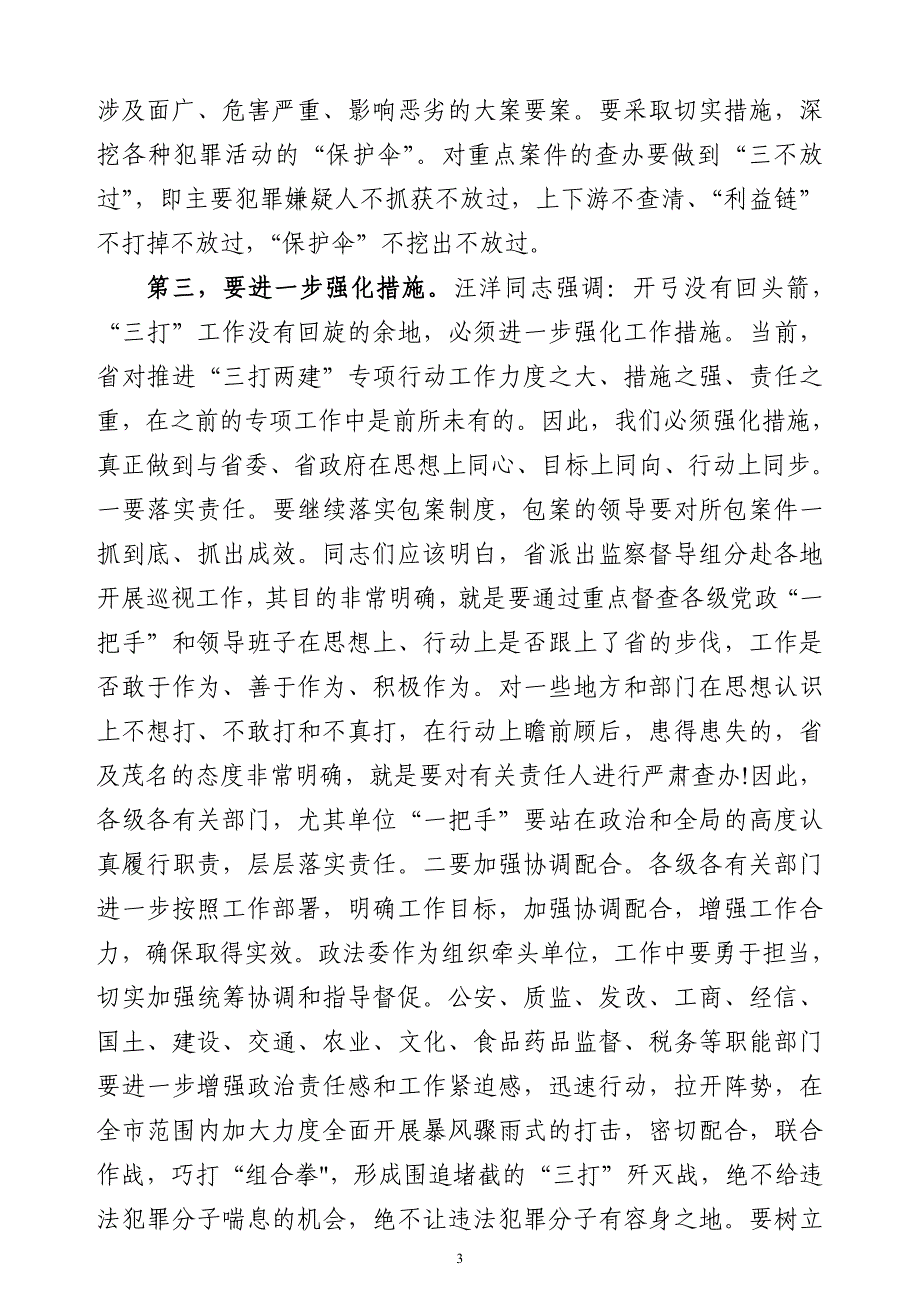 涉及面广、危害严重、影响恶劣的大案要案。要采取切实措施，深
挖各种犯罪活动的“保护伞”。对重点案件的查办要做到“三不放
过”，即主要犯罪嫌疑人不抓获不放过，上下游不查清、“利益链”
不打掉不放过，“保护伞”不挖出不放过。
第三，要进一步强化措施。汪洋同志强调：开弓没有回头箭，
“三打”工作没有回旋的余地，必须进一步强化工作措施。当前，
省对推进“三打两建”专项行动工作力度之大、措施之强、责任之
重，在之前的专项工作中是前所未有的。因此，我们必须强化措施，
真正做到与省委、省政府在思想上同心、目标上同向、行动上同步。
一要落实责任。要继续落实包案制度，包案的领导要对所包案件一
抓到底、抓出成效。同志们应该明白，省派出监察督导组分赴各地
开展巡视工作，其目的非常明确，就是要通过重点督查各级党政“一
把手”和领导班子在思想上、行动上是否跟上了省的步伐，工作是
否敢于作为、善于作为、积极作为。对一些地方和部门在思想认识
上不想打、不敢打和不真打，在行动上瞻前顾后，患得患失的，省
及茂名的态度非常明确，就是要对有关责任人进行严肃查办!因此，
各级各有关部门，尤其单位“一把手”要站在政治和全局的高度认
真履行职责，层层落实责任。二要加强协调配合。各级各有关部门
进一步按照工作部署，明确工作目标，加强协调配合，增强工作合
力，确保取得实效。政法委作为组织牵头单位，工作中要勇于担当，
切实加强统筹协调和指导督促。公安、质监、发改、工商、经信、
国土、建设、交通、农业、文化、食品药品监督、税务等职能部门
要进一步增强政治责任感和工作紧迫感，迅速行动，拉开阵势，在
全市范围内加大力度全面开展暴风骤雨式的打击，密切配合，联合
作战，巧打“组合拳"，形成围追堵截的“三打”歼灭战，绝不给违
法犯罪分子喘息的机会，绝不让违法犯罪分子有容身之地。要树立
3